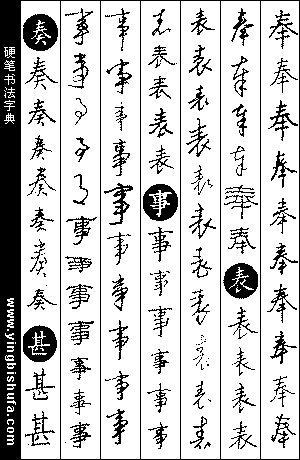 奉奉奉奉奉奉奉奉奉奉奉
奉奉奉奉奉奉表表表表表
表表表表表表表表表表表
表表表表表事事事事事事事
事事事事事事事事事事
事事事事事事事事事事事事
奏奏奏奏奏奏奏奏甚甚甚
硬笔书法字典
www.yingbishufa.com